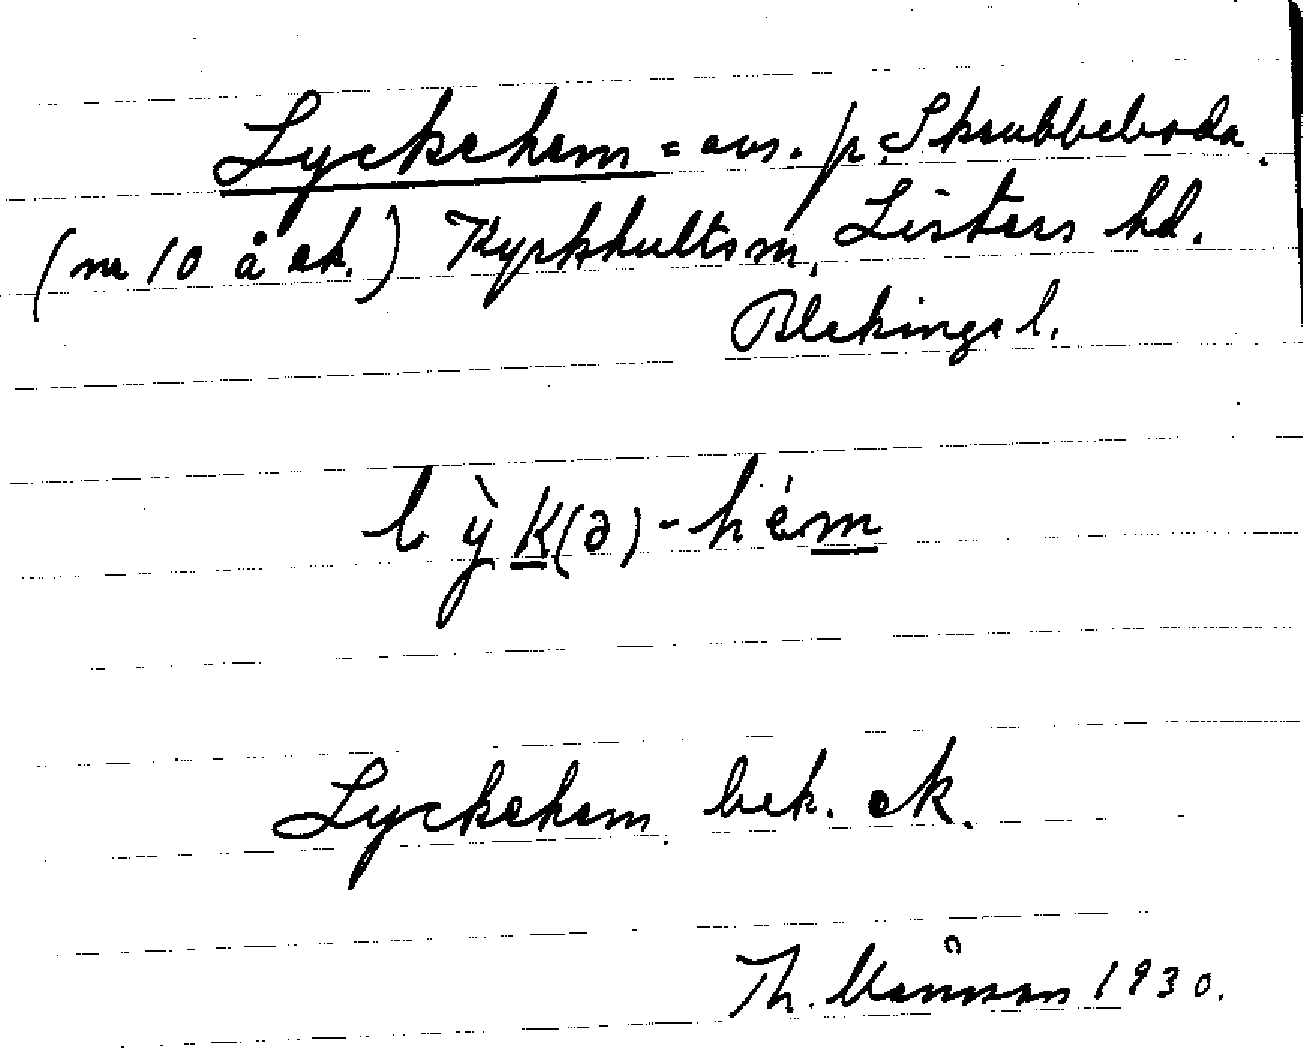 Lyckehem = avs. p. Skrubbeboda.
(nr 10 å ek.) Kyrkhults sn, Listers hd.
Blekinge l.
lỳk(ə)-hém
Lyckehem bek. ek.
Th. 1930.